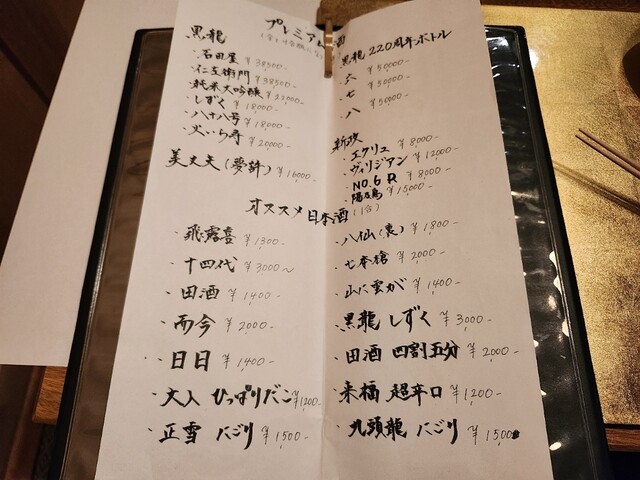 プレミアム
黒龍
・石田屋 ¥38500-
・仁左衛門 ¥38500-
・純米大吟醸 ¥22000-
・しずく ¥18000-
・八十八号 ¥18000-
・火いら寿 ¥20000-
美丈夫(夢許) ¥16000-
黒龍220周年ボトル
・六 ¥50000-
・七 ¥50000-
・八 ¥50000-
新政
・エクリュ ¥8000-
・ヴィリジアン ¥12000-
・NO.6 R ¥8000-
・陽乃鳥 ¥15000-
オススメ日本酒(1合)
・飛露喜 ¥1300-
・十四代 ¥3000〜
・田酒 ¥1400-
・而今 ¥2000-
・日日 ¥1,400-
・大入 ひっぱりだこ ¥1200-
・正雪 にごり ¥1500-
・八仙(裏) ¥1800-
・七本槍 ¥2000-
・山に雲が ¥1400-
・黒龍 しずく ¥3,000-
・田酒 四割五分 ¥2000-
・来福 超辛口 ¥1200-
・九頭龍 にごり ¥1500